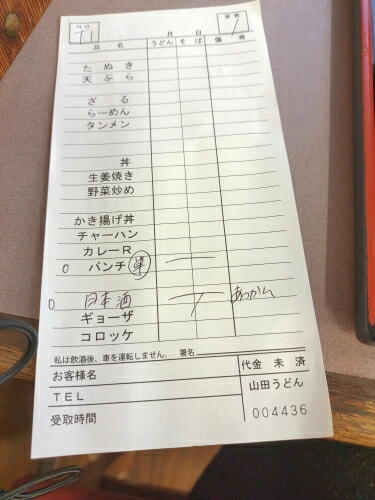 NO
月 日
客数
品名 うどん そば 備考
たぬき
天ぷら
ざる
らーめん
タンメン
丼
生姜焼き
野菜炒め
かき揚げ丼
チャーハン
カレーR
0 パンチ 単 二
0 日本酒 あつかん
ギョーザ
コロッケ
私は飲酒後、車を運転しません。 署名
お客様名 代金 未 済
TEL 山田うどん
受取時間 004436